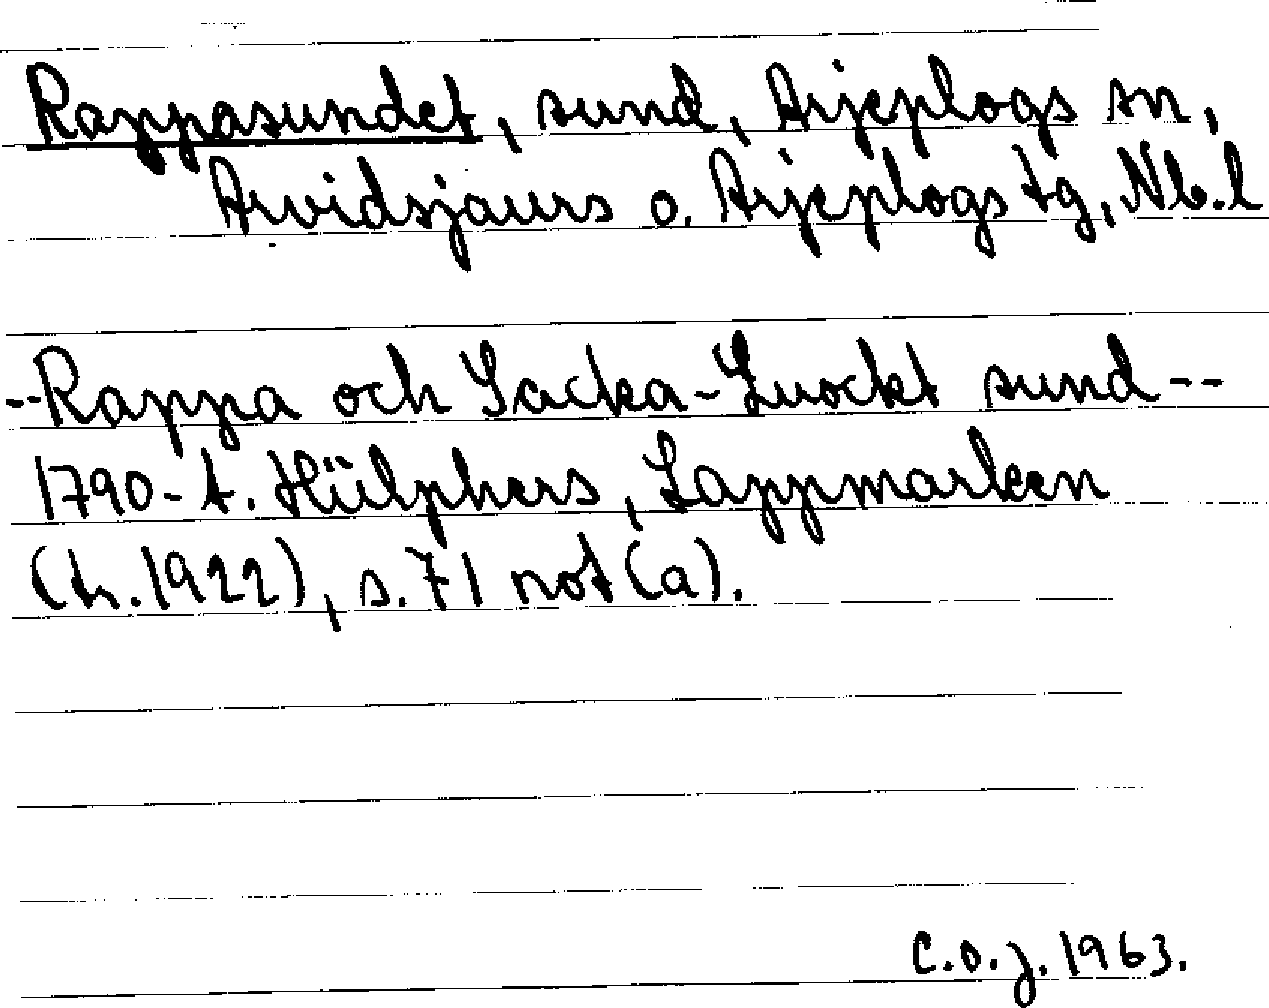 Rappasundet, sund, Arjeplogs sn,
Arvidsjaurs o. Arjeplogs tg, Nb.l
--Rappa och Sacka-Luockt sund--
1790-t. Hülphers, Lappmarken
(tr. 1922), s. 71 not (a).
C.O.J. 1963.